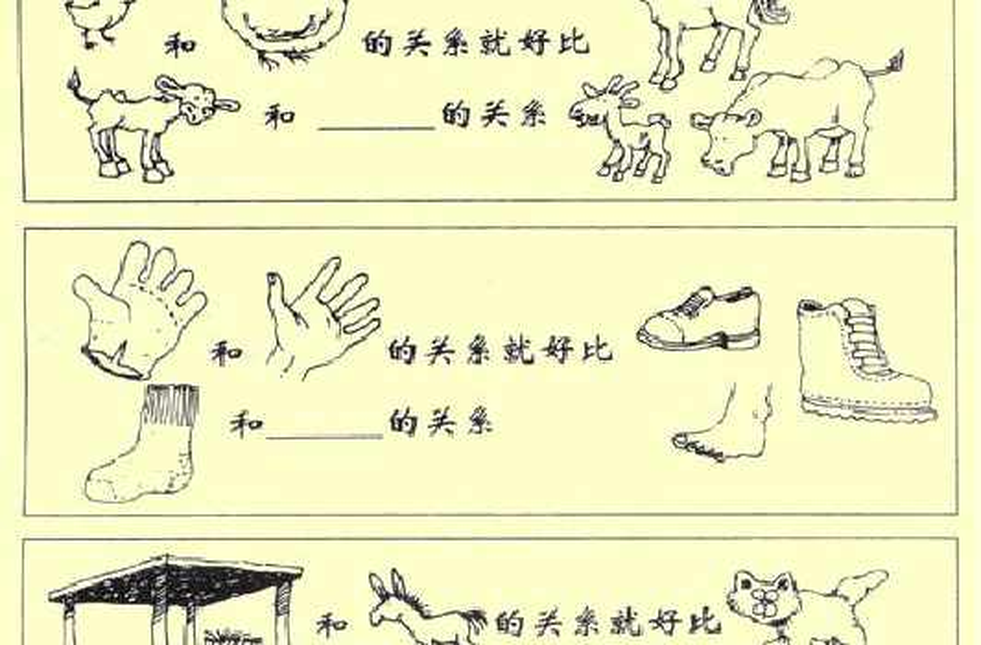 和 的关系就好比
和 ______ 的关系
和 的关系就好比
和 ______ 的关系
和 的关系就好比